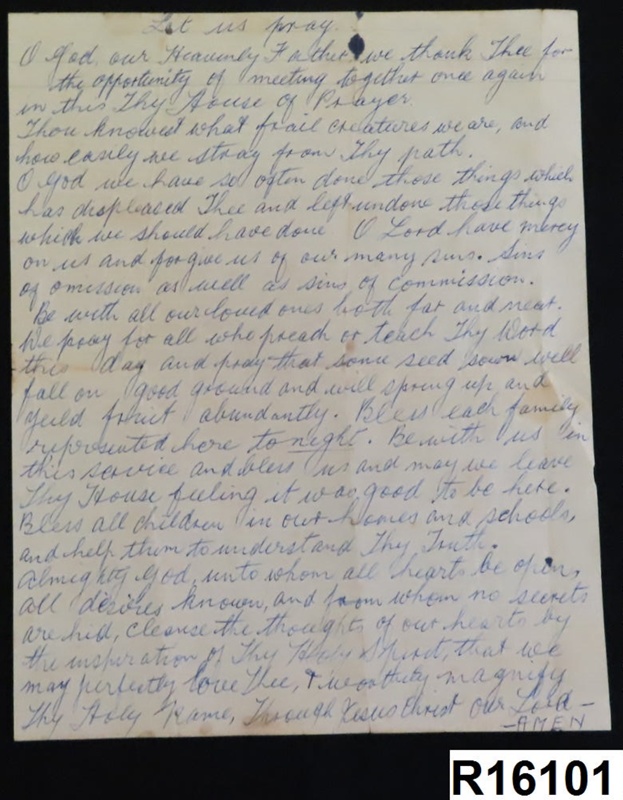 Let us pray.
O God, our Heavenly Father we thank Thee for
the opportunity of meeting together once again
in this Thy House of Prayer.
Thou knowest what frail creatures we are, and
how easily we stray from Thy path.
O God we have so often done those things which
has displeased Thee and left undone those things
which we should have done O Lord have mercy
on us and forgive us of our many sins. Sins
of omission as well as sins of commission.
Be with all our loved ones both far and near.
We pray for all who preach or teach Thy Word
this day and pray that some seed sown will
fall on good ground and will spring up and
yeild fruit abundantly. Bless each family
represented here to night. Be with us in
this service and bless us and may we leave
Thy House feeling it was good to be here.
Bless all children in our homes and schools,
and help them to understand Thy Truth.
Almighty God, unto whom all hearts be open,
all desires known, and from whom no secrets
are hid, cleanse the thoughts of our hearts by
the inspiration of Thy Holy Spirit, that we
may perfectly love Thee, & worthily magnify
Thy Holy Name, Through Jesus Christ Our Lord -
- AMEN
R16101